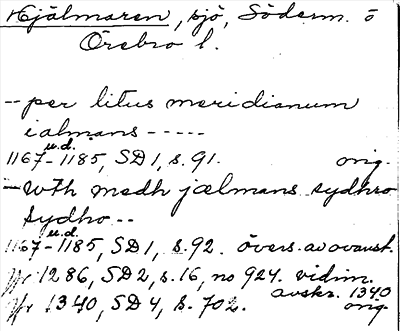 Hjälmaren, sjö, Söderm. o
Örebro l.
-- per litus meridianum
ialmans -----
u.d.
1167-1185, SD 1, s. 91. orig.
-- wth medh jælmans sydhro
sydho --
u.d.
1167-1185, SD 1, s. 92. övers. av ovanst.
Jfr 1286, SD 2, s. 16, no 924. vidim.
avskr. 1340
Jfr 1340, SD 4, s. 702. orig.